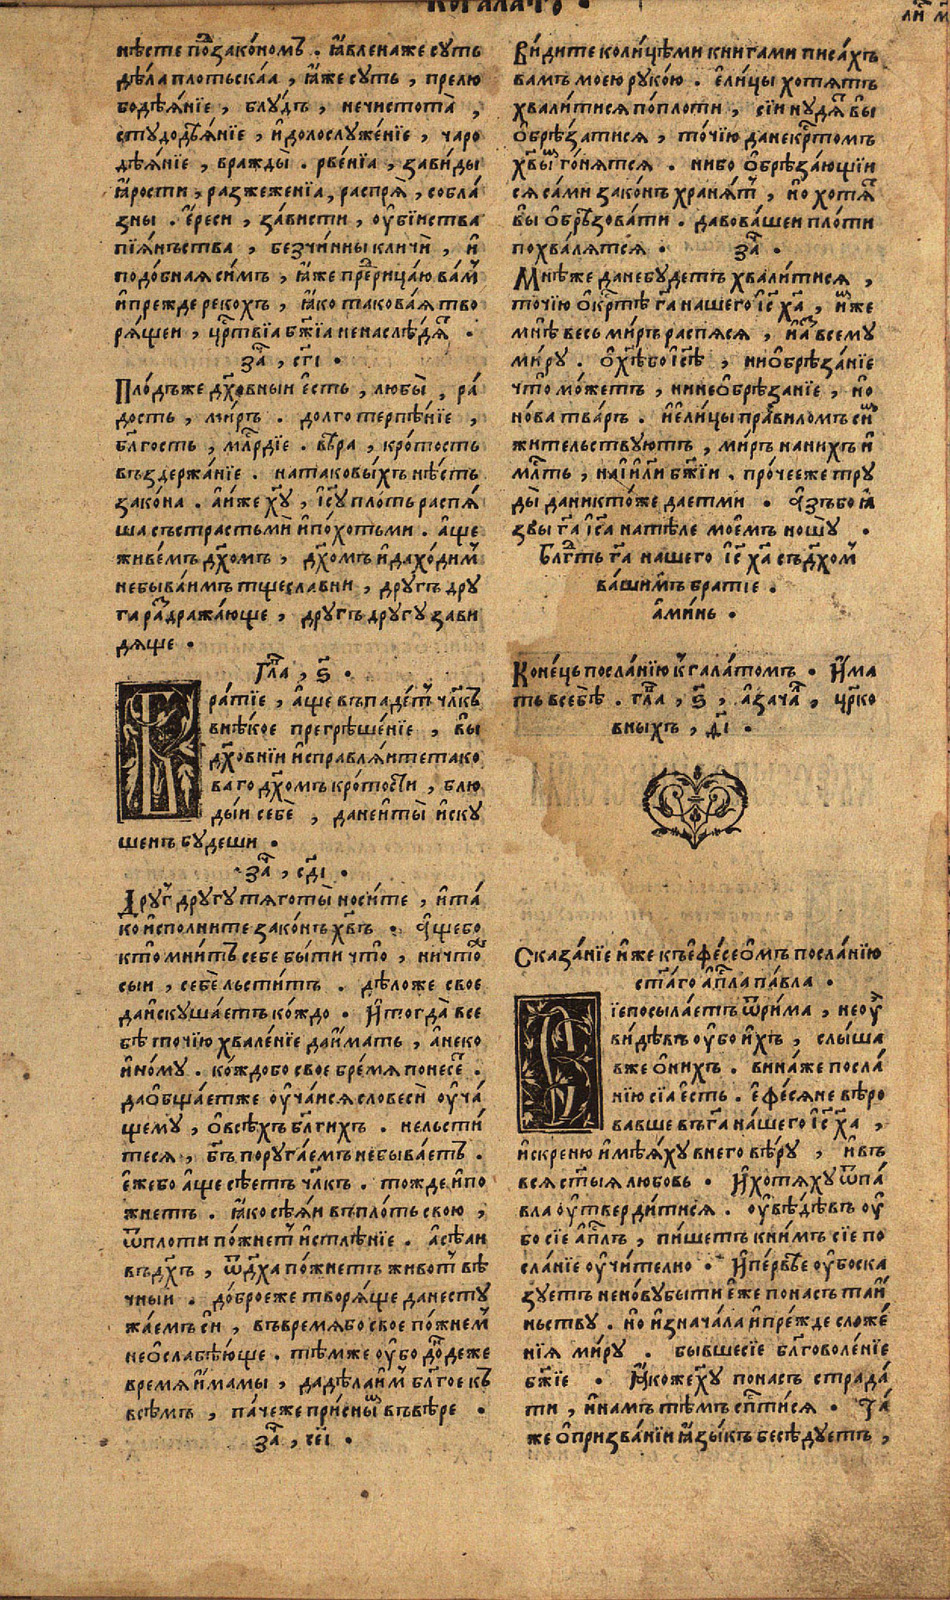 Когалато •
нѣсте пⷣозакономъ . ꙗвленаже суть
дѣла плотьскаа , ꙗже суть , прелю
бодѣянїе , блудъ , нечистота ,
студодѣянїе , идолослуженїе , чаро
дѣянїе , вражды . рвенїа , завиды
ꙗрости , разжеженїа , распря , собла
зны . ереси , зависти , оубїиства
пїяньства , безчинны кличи , и
подобнаясимъ , ꙗже преⷣрицаю ваⷨ
ипрежде рекохъ , ꙗко таковая тво
рящеи , црⷭтвїа бж҃їа ненаслѣдяⷮ .
заⷱ , сг҃і •
Плодъже дх҃овныи есть , любы , ра
дость , миръ . долготерпѣнїе ,
блг҃ость , млⷭрдїе . вѣра , кротость
въздержанїе . натаковыхъ нѣсть
закона . аиже хⷭу , іс҃у плоть распя
ша състрастьми ипохотьми . аще
живемъ дх҃омъ , дх҃омъ идаходимⷨ
небываимъ тщеславни , другъ дру
га раⷥдражающе , другъ другу зави
дяще •
глⷡа , ѕ҃ •
Братїе , аще въпадетⷮ члкъ҃
внѣкое прегрѣшенїе , вы
дх҃овнїи исправляите тако
ваго дх҃омъ кротости , блю
дыи себе , данеиты иску
шенъ будеши •
заⷱ , сд҃і •
Друⷢ другу тяготы носите , ита
ко исполните законъ хв҃ъ • Ꙗщебо
кто мнитъ себе быти что , ничтоⷤ
сыи , себе льститъ . дѣложе свое
даискушаетъ кождо • Итогда все
бѣ точїю хваленїе даимать , анеко
иному . кождобо свое бремя понесеⷮ .
даобщаетже оучаися словеси оуча
щему , овсѣхъ блг҃ихъ . нельсти
теся , бг҃ъ поругаемъ небываетъ .
ежебо аще сѣетъ члк҃ъ . тожде ипо
жнетъ . ꙗко сѣяи въплоть свою ,
ѿплоти пожнетⷮ истлѣнїе . асѣаи
въдх҃ъ , ѿдх҃а пожнетъ животⷮ вѣ
чныи . доброеже творяще данесту
жаемъ си , въвремябо свое пожнемⷨ
неослабѣюще . тѣмже оубо доⷩдеже
время имамы , дадѣлаимⷨ блг҃ое къ
всѣмъ , пачеже присныⷨ въвѣре •
заⷱ , се҃і •
Видите колицѣми книгами писахъ
вамъ моею рукою . елицы хотятъ
хвалитися поплоти , сїи нудяⷮ вы
обрѣзатися , точїю данекрⷭтомъ
хв҃ыⷨ гонятся . нибо обрѣзающїи
ся сами законъ хранятⷮ , но хотяⷮ
вы обрѣзовати . давовашеи плоти
похвалятся • заⷱ •
Мнѣже данебудетъ хвалитися ,
точїю окрⷭтѣ га҃ нашего іс҃ ха҃ , имⷨже
мнѣ весь миръ распяся , иаⷥ всему
миру . охѣбоісѣ , ниобрѣзанїе
что можетъ , нинеобрѣзанїе , но
нова тварь . иелицы правиломъ сиⷨ
жительствуютъ , миръ нанихъ и
млⷭть , наіил҃и бж҃їи . прочееже тру
ды даниктоже дает ми • Ꙗзъбо ꙗ
звы га҃ іс҃а натѣле моемъ ношу •
Блгⷣть га҃ нашего іс҃ ха҃ съдх҃омⷨ
вашимъ братїе .
аминь •
Конець посланїю кгалатомъ • Има
ть всебѣ . глⷡа , ѕ҃ , азачаⷧ , црⷦо
вныхъ , д҃і •
Сказанїе иже къефесеомъ посланїю
стⷭаго апⷭла павла •
Сїепосылаетъ ѿрима , неоу
видѣвъ оубо ихъ , слыша
вже онихъ . винаже посла
нїю сїа есть . ефесяне вѣро
вавше въга҃ нашего іс҃ ха҃ ,
искреню имѣяху внего вѣру , ивъ
вся ст҃ыя любовь • Ихотяху ѿпа
вла оутвердитися . оувѣдѣвъ оу
бо сїе апⷭлъ , пишетъ книмъ сїе по
сланїе оучително • Ипервѣе оубоска
зуетъ неновубыти еже понасъ таи
ньству . но изначала ипрежде сложе
нїя миру . бывшесїе блг҃оволенїе
бж҃їе • Ꙗкожехⷭу понасъ страда
ти , инамъ тѣмъ спⷭтися • Та
же опризванїи ꙗзыкъ бесѣдуетъ ,